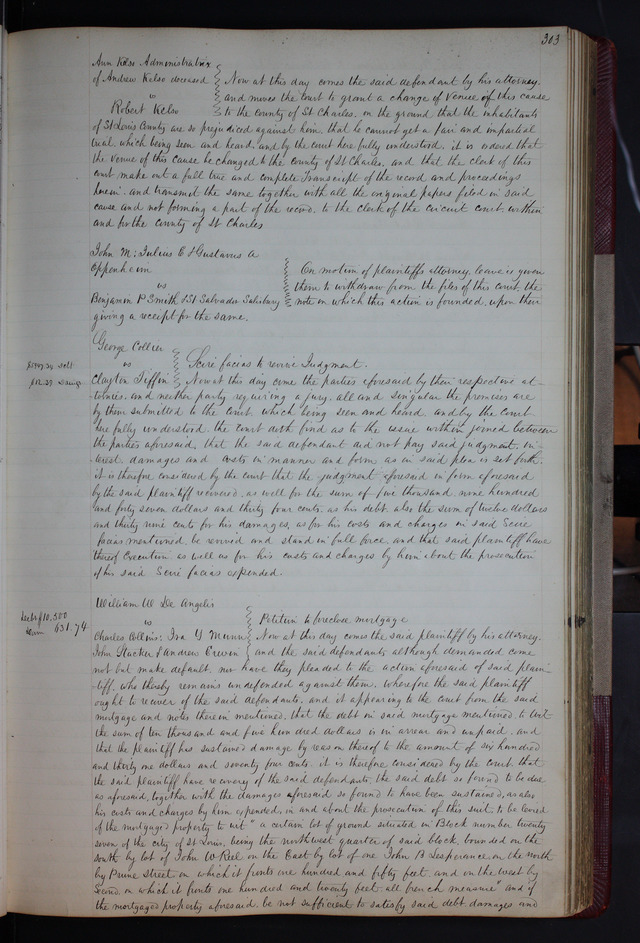 303
Ann Kelso Administratrix
of Andrew Kelso deceased
vs
Robert Kelso
Now at this day comes the said defendant by his attorney
and moves the court to grant a change of Venue of this cause
to the county of St Charles, on the ground that the inhabitants
of St Louis County are so prejudiced against him, that he cannot get a fair and impartial
trial, which being seen and heard, and by the court here fully understood, it is ordered that
the Venue of this cause be changed to the county of St Charles, and that the clerk of this
court make out a full true and complete Transcript of the record and proceedings
herein, and transmit the same together with all the original papers filed in said
cause and not forming a part of the record, to the clerk of the circuit court, within
and for the county of St Charles
John M: Julius E & Gustavus A
Oppenheim
vs
Benjamin P Smith & St Salvador Salisbury
On motion of plaintiffs attorney, leave is given
them to withdraw from the files of this court, the
note on which this action is founded, upon their
giving a receipt for the same.
George Collier
vs
Clayton Tiffin
$5947.34 debt
$12.39 damage
Scire facias to revive Judgment.
Now at this day come the parties aforesaid by their respective at-
tornies, and neither party requiring a jury, all and singular the premises are
by them submitted to the court, which being seen and heard, and by the court
here fully understood, the court doth find as to the issue within joined between
the parties aforesaid, that the said defendant did not pay said judgment, in-
terest, damages and costs in manner and form as in said plea is set forth,
it is therefore considered by the court that the judgment aforesaid in form aforesaid
by the said plaintiff recovered, as well for the sum of five thousand nine hundred
and forty seven dollars and thirty four cents, as his debt, also the sum of twelve dollars
and thirty nine cents for his damages, as for his costs and charges in said Scire
facias mentioned, be revived and stand in full force, and that said plaintiff have
thereof Execution as well as for his costs and charges by him about the prosecution
of his said Scire facias expended.
William W De Angelis
vs
Charles Collins: Ira Y Munn
John Stacker & Andrew Erwin
Debt $10.500
631.74
Petition to foreclose mortgage
Now at this day comes the said plaintiff by his attorney,
and the said defendants although demanded come
not but make default, nor have they pleaded to the action aforesaid of said plain-
tiff, who thereby remains undefended against them. Wherefore the said plaintiff
ought to recover of the said defendants, and it appearing to the court from the said
mortgage and notes therein mentioned, that the debt in said mortgage mentioned, to wit
the sum of ten thousand and five hundred dollars is in arrear and unpaid, and
that the plaintiff has sustained damage by reason thereof to the amount of six hundred
and thirty one dollars and seventy four cents, it is therefore considered by the court that
the said plaintiff have recovery of the said defendants, the said debt so found to be due
as aforesaid, together with the damages aforesaid so found to have been sustained, as also
his costs and charges by him expended, in and about the prosecution of this suit to be levied
of the mortgaged property to wit "a certain lot of ground situated in Block number twenty
seven of the city of St Louis, being the northwest quarter of said block, bounded on the
South by lot of John W Reel on the East by lot of one John B Lesperance, on the north
by Prune Street, on which it fronts one hundred and fifty feet, and on the west by
Second, on which it fronts one hundred and twenty feet, all french measure" and if
the mortgaged property aforesaid, be not sufficient to satisfy said debt, damages, and